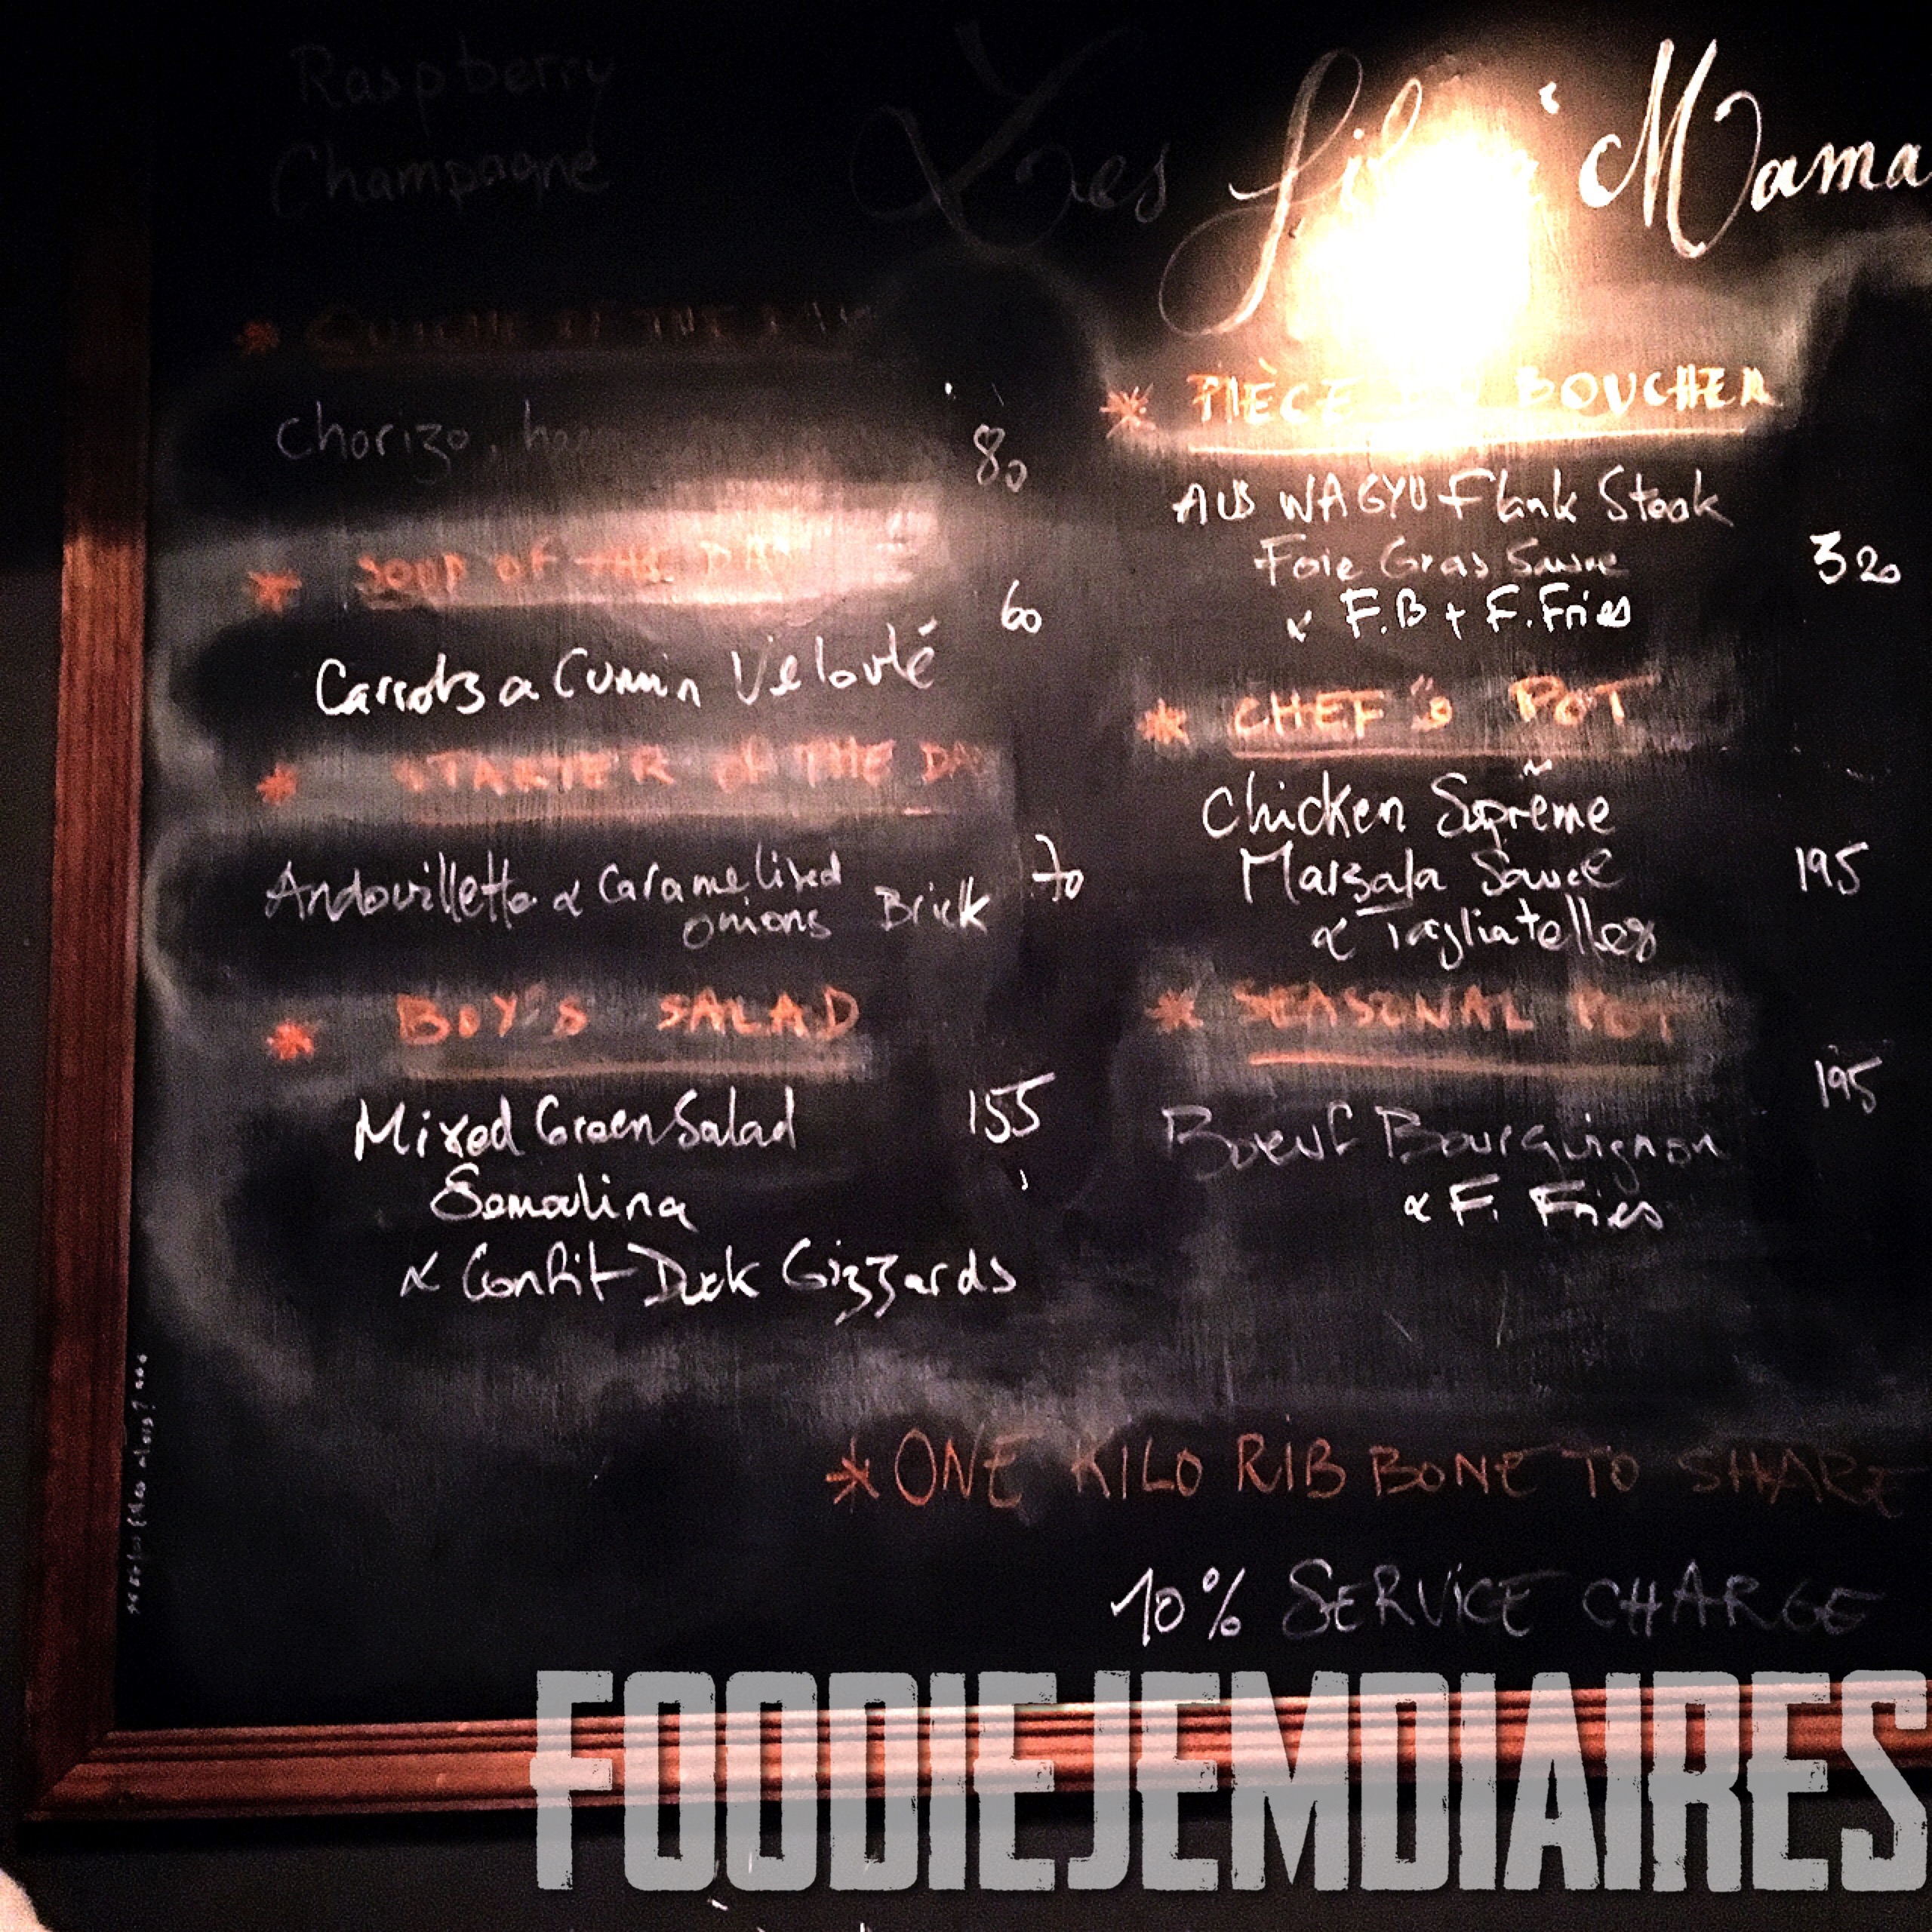 Raspberry
Champagne
Les
Mama
* QUICHE OF THE DAY
Chorizo,
80
* SOUP OF THE DAY
60
Carrots & Cumin Velouté
* STARTER OF THE DAY
Andouillette & Caramelized
onions Brick 70
* BOY'S SALAD
Mixed Green Salad 155
Semoulina
& Confit Duck Gizzards
* PIÈCE DU BOUCHER
AUS WAGYU Flank Steak
Foie Gras Sauce 320
& F.B + F.Fries
* CHEF'S POT
Chicken Suprême
Marsala Sauce 195
& Tagliatelles
* SEASONAL POT
195
Boeuf Bourguignon
& F. Fries
* ONE KILO RIB BONE TO SHARE
10% SERVICE CHARGE
FOODIEJEMDIAIRES